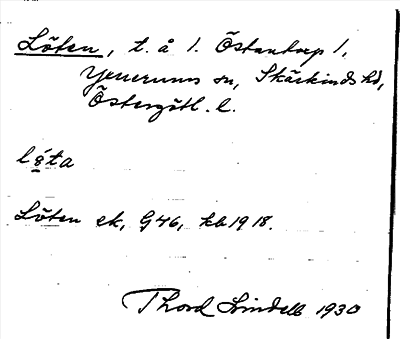 Löten, t. å 1. Östantorp 1,
Yxnerums sn, Skärkinds hd,
Östergötl. l.
lö́ta
Löten ek, G46, kb 1918.
Thord Lindell 1930